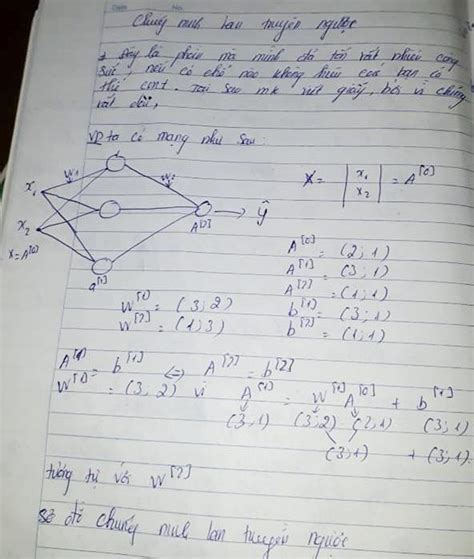 Date No.
Chứng minh lan truyền ngược
Đây là phần mà mình đã tốn rất nhiều công
sức, nếu có chỗ nào không hiểu các bạn có
thể cmt. Tại sao mk viết giấy, bởi vì chứng
rất dài,
VD ta có mạng như sau:
W1 W2
x1
x2
X=A[0]
a[1]
A[2] → ŷ
X = | x1 x2 | = A[0]
A[0] = (2;1)
A[1] = (3;1)
A[2] = (1;1)
W[1] = (3;2) b[1] = (3;1)
W[2] = (1;3) b[2] = (1;1)
A[1] = b[1] ⇔ A[2] = b[2]
W[1] = (3,2) vì A[1] = W[1] A[0] + b[1]
(3;1) (3;2) (2;1) (3;1)
(3;1) + (3;1)
tương tự với W[2]
chứng minh lan truyền ngược